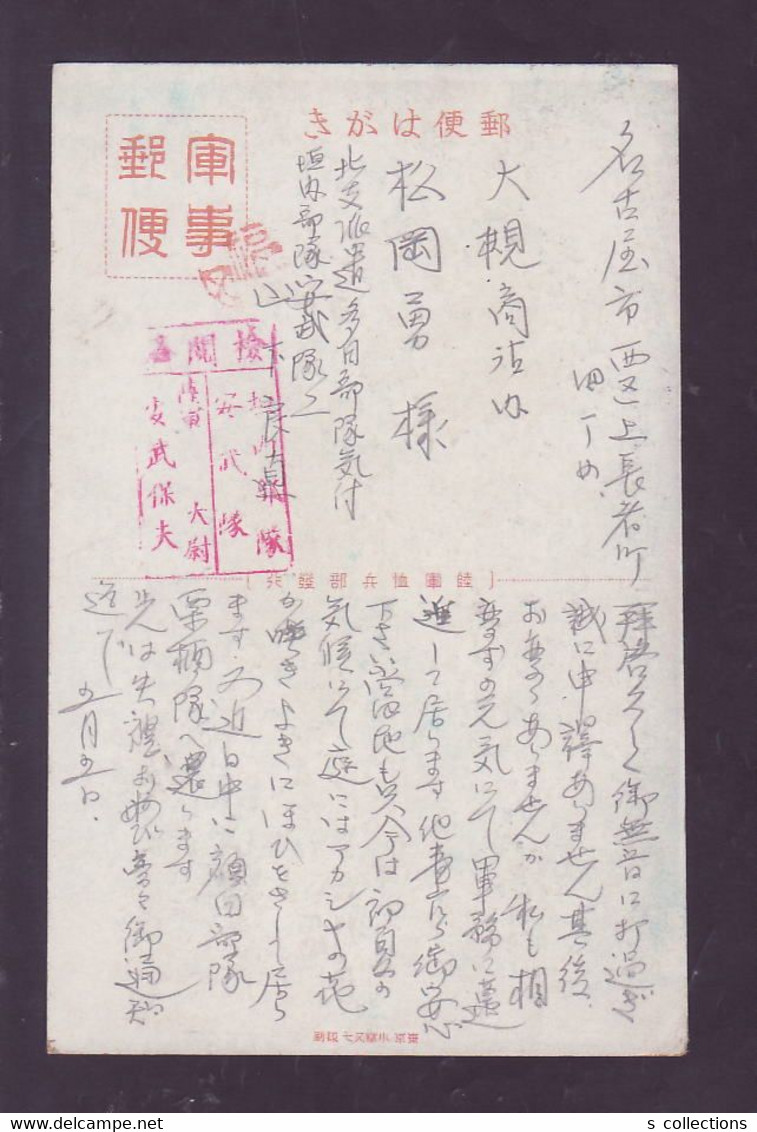 郵便はがき
軍事
郵便
名古屋市西区上長者町
四丁め、
大規商店内
松岡勇様
北支派遣多田部隊気付
垣内部隊安武隊
山下
検閲
垣内部隊
安武隊
陸軍 大尉
安武保夫
〔陸軍恤兵部發行〕
拝啓久しく御無音に打過ぎ
誠に申訳ありません其後
お変りありませんか 私も相
変らずの元気にて軍務に邁
進して居ります他事乍ら御安心
下さい 当地も只今は初夏の
気候にて庭にはアカシヤの花
が咲きよきにほひをさし居り
ます 又近日中に 部隊
栗栖隊へ還ります
先は失禮お詫び旁々御通知
迄で
五月五日、
東京 小塚又七 印刷
s collections